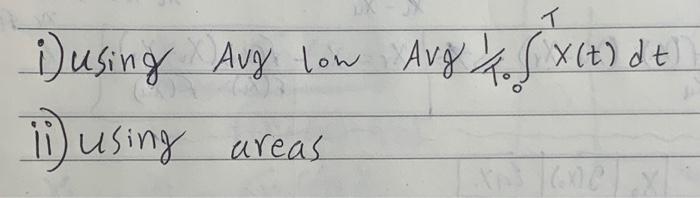 i) using Avg low Avg 1/T₀ ∫₀ᵀ x(t) dt
ii) using areas